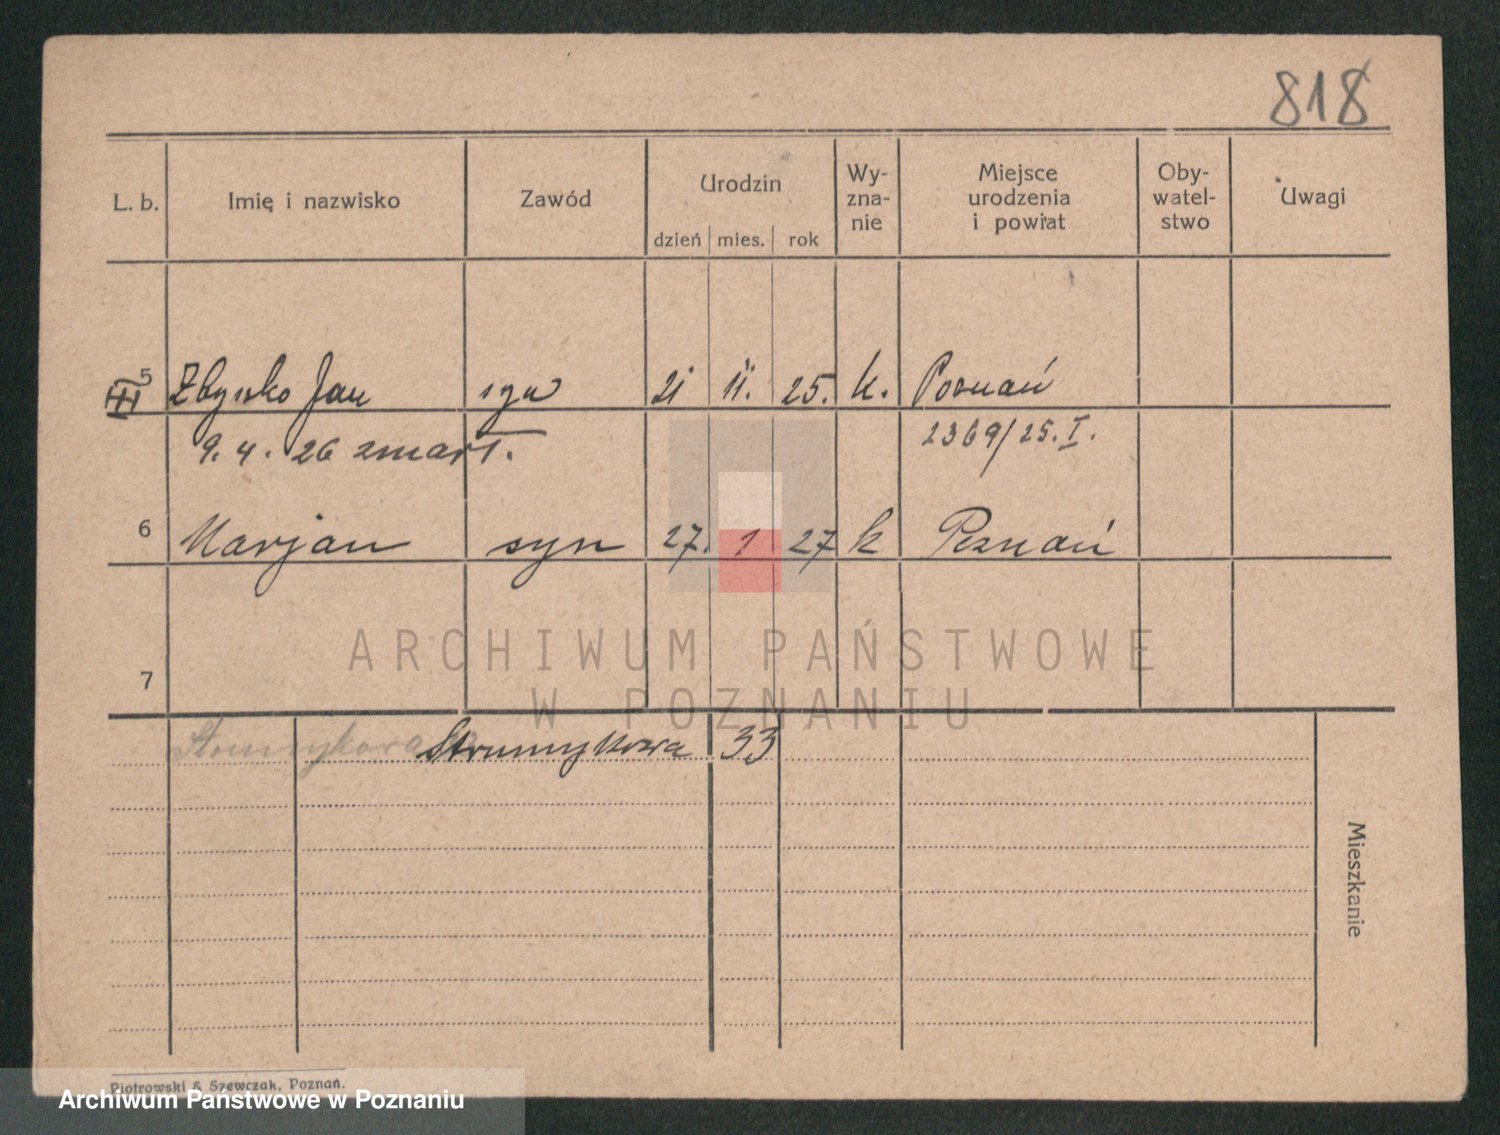 818
L. b. Imię i nazwisko Zawód Urodzin dzień mies. rok Wy-zna-nie Miejsce urodzenia i powiat Oby-watel-stwo Uwagi
5 Zbyszko Jan syn 21 11. 25. k. Poznań
9. 4. 26 zmarł. 2369/25. I.
6 Marjan syn 27. 1 27 k Poznań
ARCHIWUM PAŃSTWOWE
7
W POZNANIU
Strumykowa Strumykowa 33
Mieszkanie
Piotrowski & Szewczak, Poznań.
Archiwum Państwowe w Poznaniu